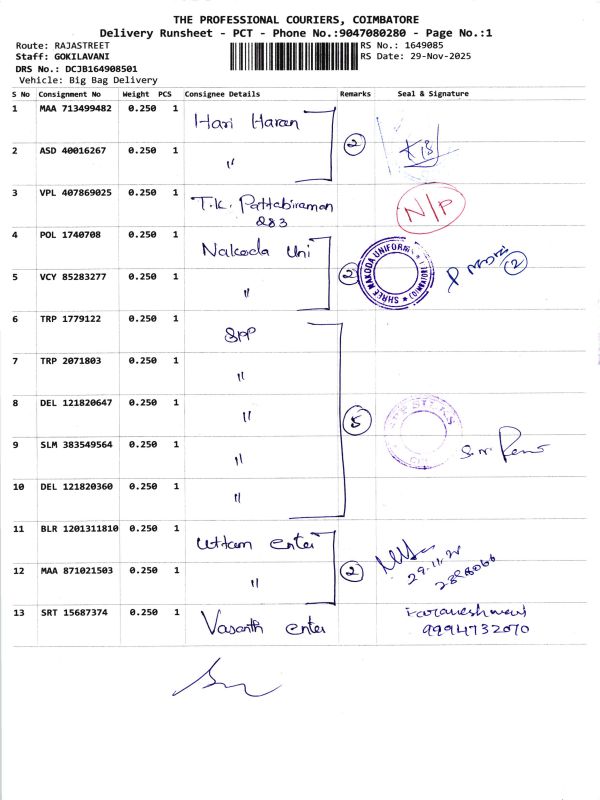 THE PROFESSIONAL COURIERS, COIMBATORE
Delivery Runsheet - PCT - Phone No.:9047080280 - Page No.:1
Route: RAJASTREET
RS No.: 1649085
Staff: GOKILAVANI
RS Date: 29-Nov-2025
DRS No.: DCJB164908501
Vehicle: Big Bag Delivery
S No Consignment No Weight PCS Consignee Details Remarks Seal & Signature
1 MAA 713499482 0.250 1 Hari Haran
2 ASD 40016267 0.250 1 " 2
3 VPL 407869025 0.250 1 T.K. Pattabiraman N/P
283
4 POL 1740708 0.250 1 Nakoda Uni
SHREE NAKODA UNIFORMS
5 VCY 85283277 0.250 1 " 2 2
6 TRP 1779122 0.250 1 SPP
7 TRP 2071803 0.250 1 "
8 DEL 121820647 0.250 1 " 5
9 SLM 383549564 0.250 1 "
10 DEL 121820360 0.250 1 "
11 BLR 1201311810 0.250 1 Uttam enter
12 MAA 871021503 0.250 1 " 2 29.11.25
13 SRT 15687374 0.250 1 Vasanth enter
9994732070